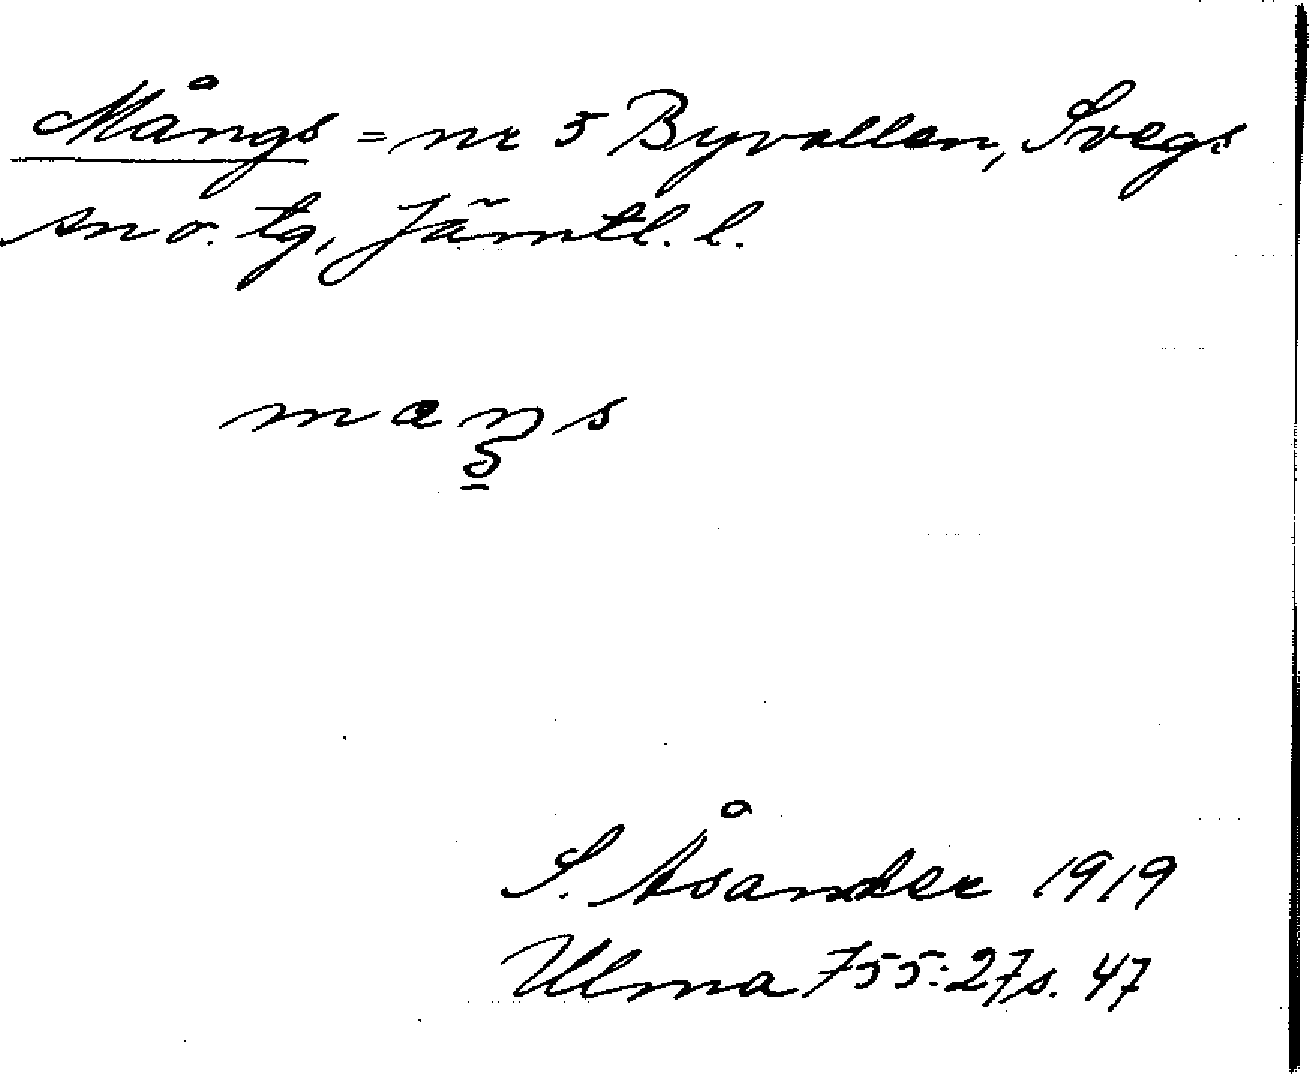 Mångs = nr 5 Byvallen, Svegs
sn o. tg, Jämtl. l.
maŋs
S. Åsander 1919
Ulma 755:27 s. 47